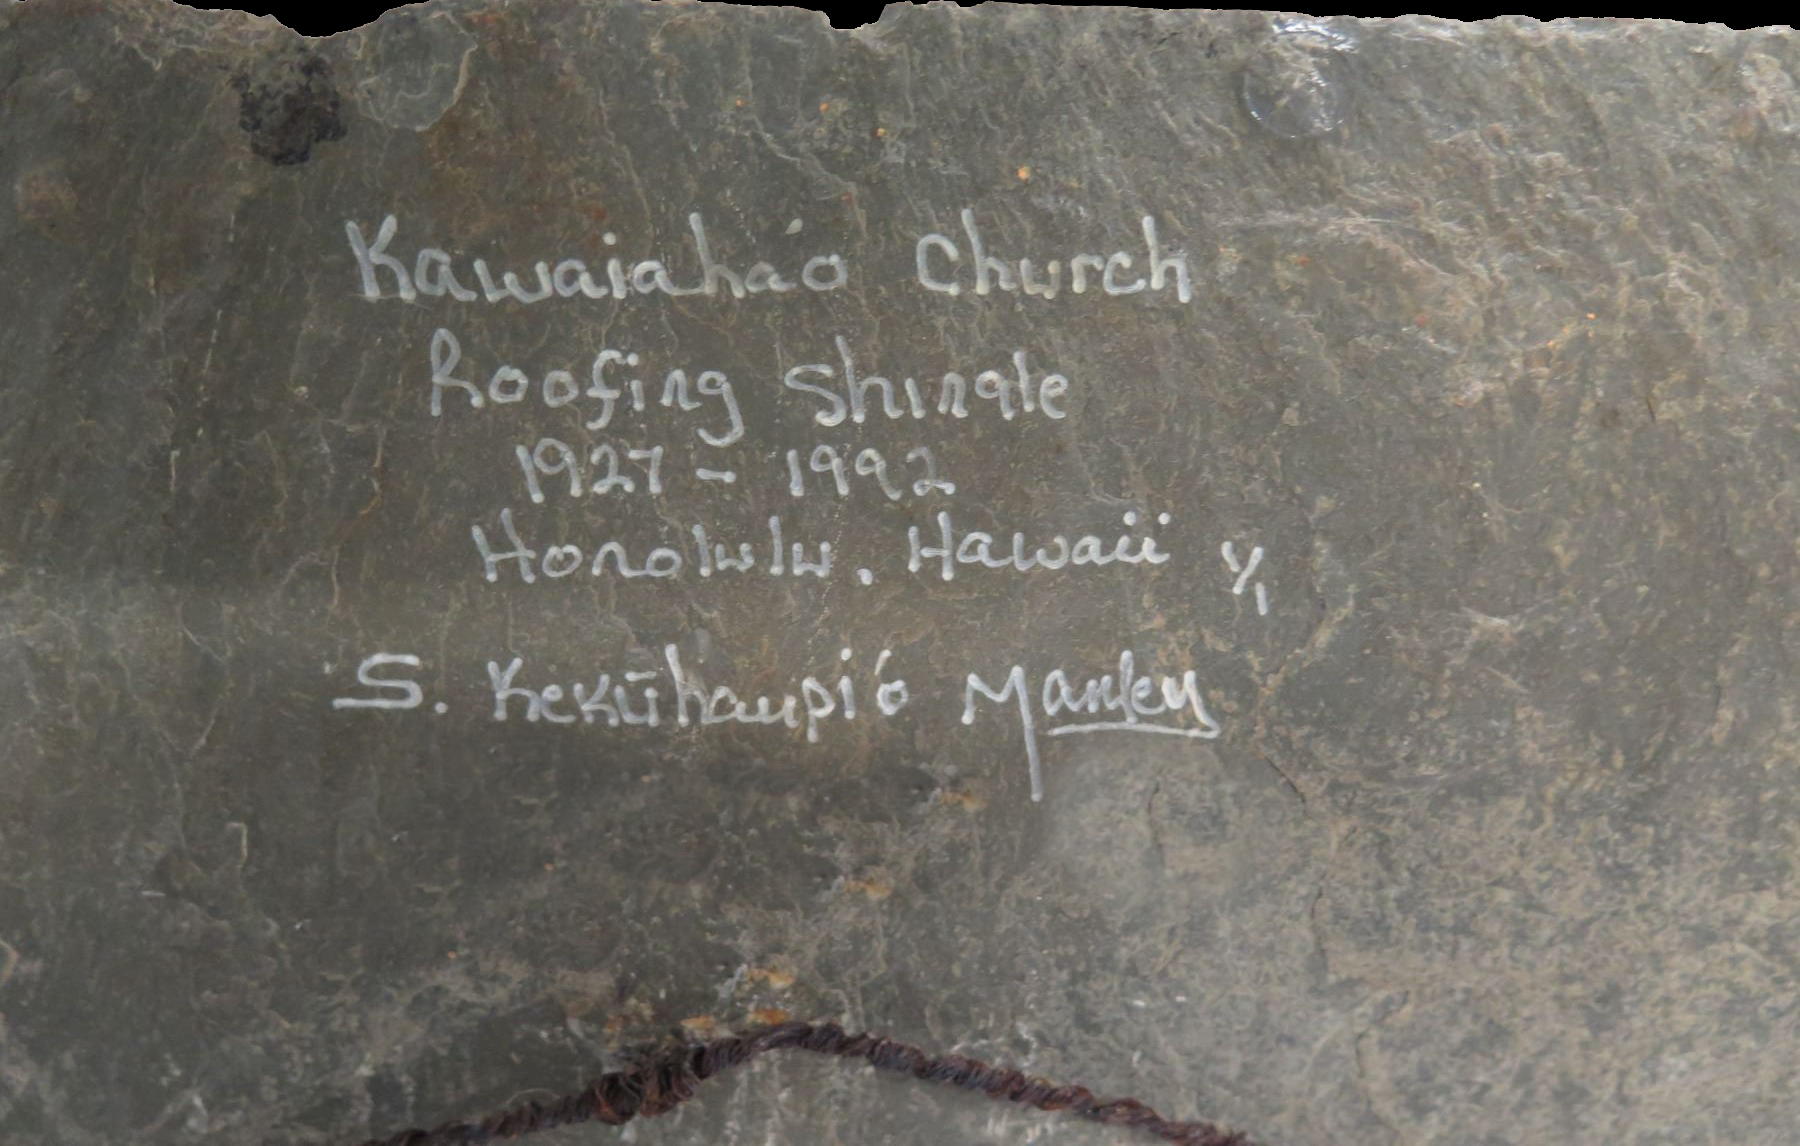 Kawaiaha'o Church
Roofing Shingle
1927 - 1992
Honolulu, Hawaii 1/1
S. Kekūhaupi'o Manley